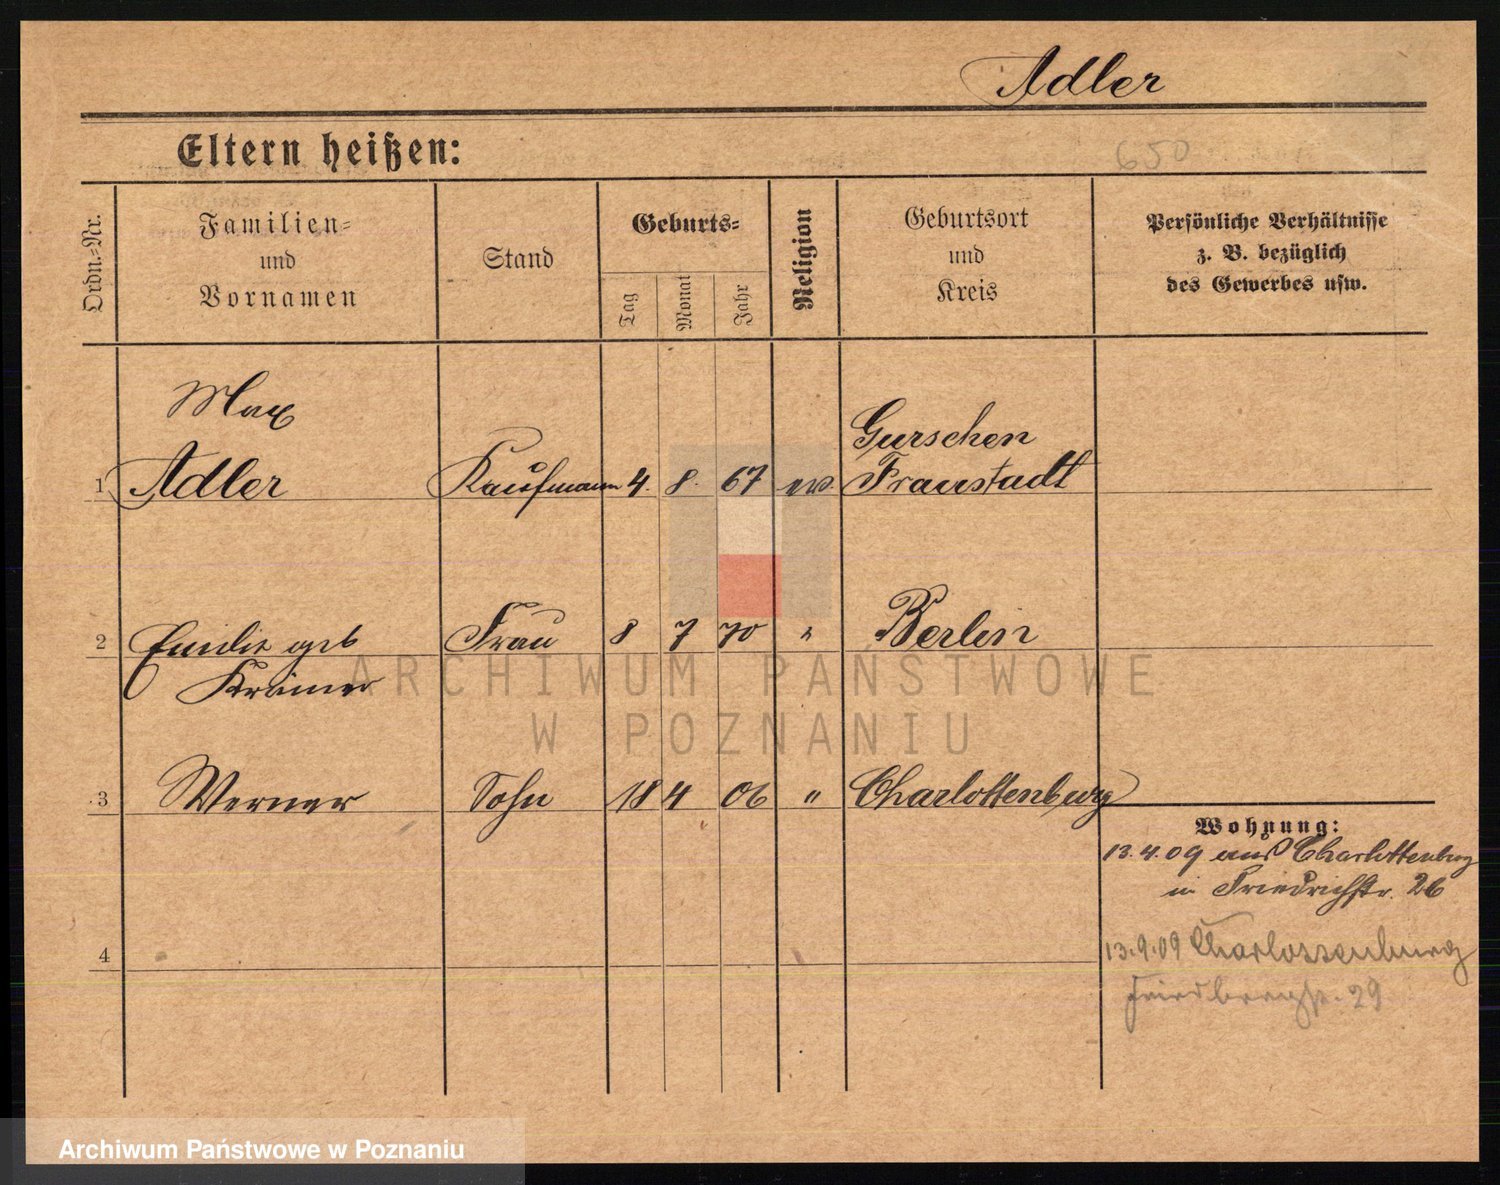 Adler
Eltern heißen:
650
Ordn.=Nr.
Familien=
und
Vornamen
Stand
Geburts=
Tag
Monat
Jahr
Religion
Geburtsort
und
Kreis
Persönliche Verhältnisse
z. B. bezüglich
des Gewerbes usw.
Max
1 Adler Kaufmann 4. 8. 67 ev. Gurschen
Fraustadt
2 Emilie geb Frau 8 7 70 " Berlin
Krämer
ARCHIWUM PAŃSTWOWE
W POZNANIU
3 Werner Sohn 18 4 06 " Charlottenburg
Wohnung:
13.4.09 aus Charlottenburg
in Friedrichstr. 26
4
13.9.09 Charlottenburg
29
Archiwum Państwowe w Poznaniu